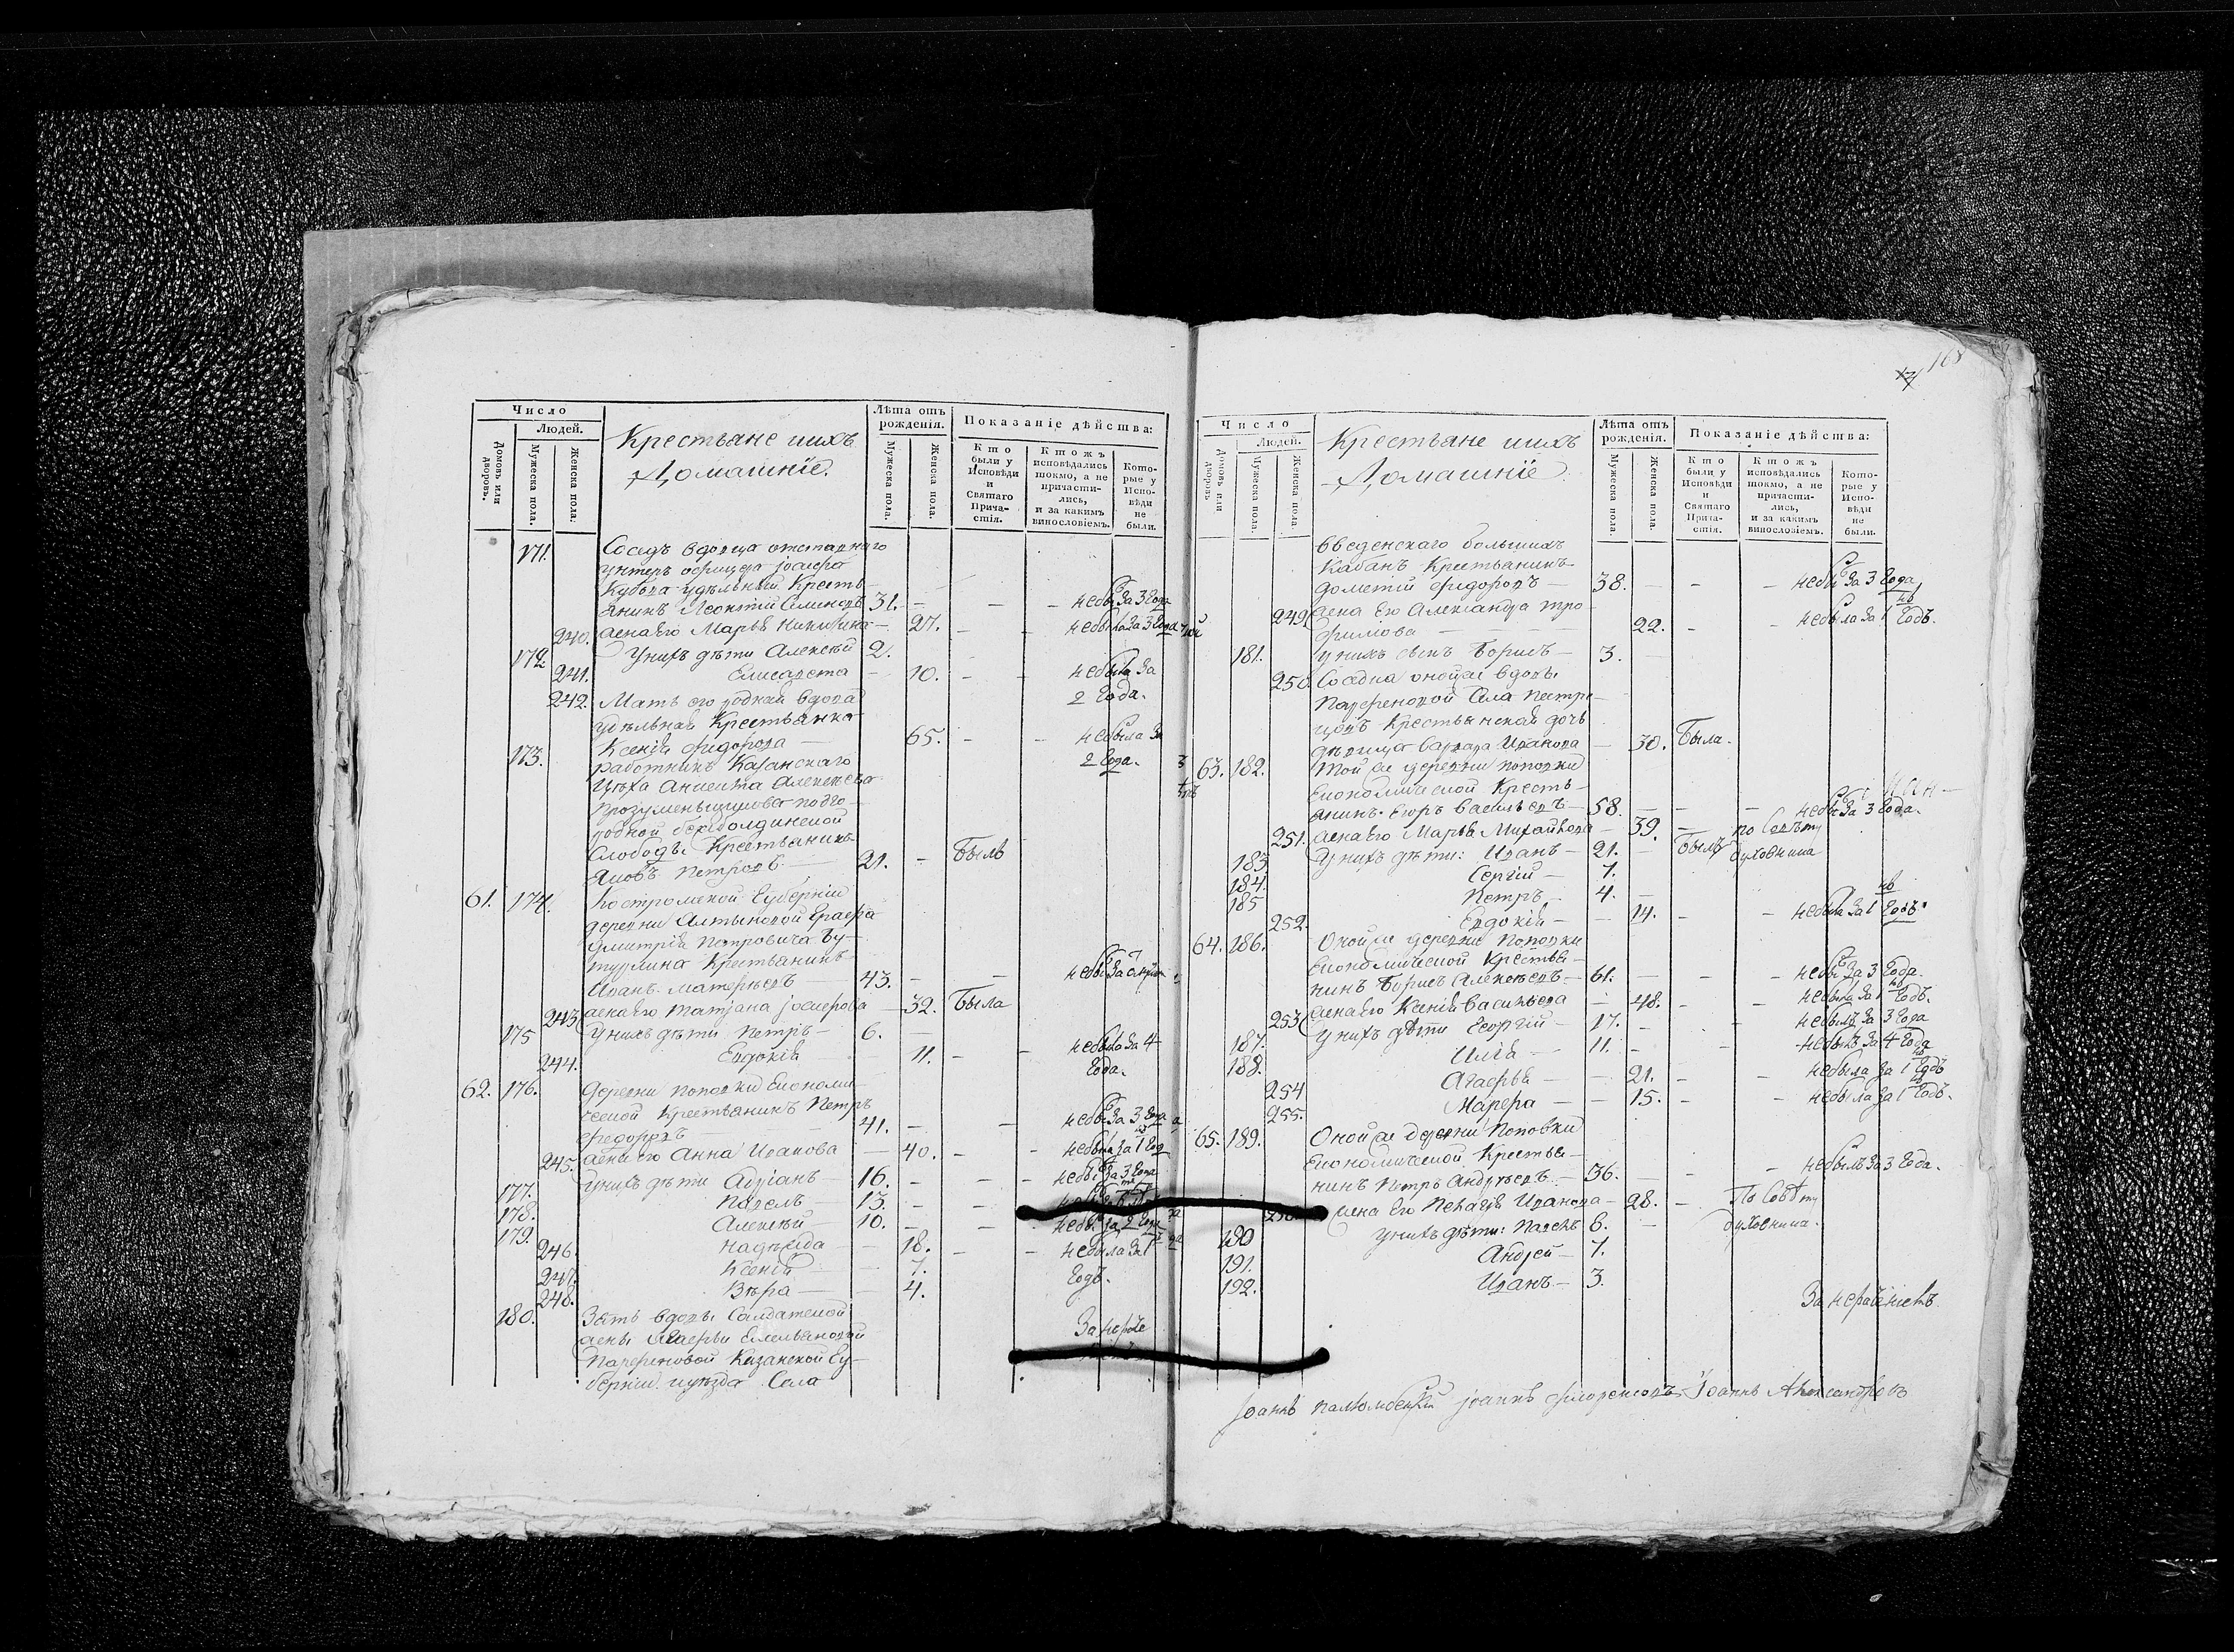 Число
Людей.
Домовъ или дворовъ.
Мужеска пола.
Женска пола.
Крестьяне ихъ
Домашніе.
Лѣта отъ рожденія.
Мужеска пола.
Женска пола.
Показаніе дѣйства:
Кто были у Исповѣди и Святаго Причастія.
Ктожъ исповѣдались токмо, а не причастились, и за какимъ винословіемъ.
Которые у Исповѣди не были.
171. Соседъ вдовца отставнаго
унтеръ офицера
удѣльный Кресть-
янинъ Леонтий Семеновъ 31. небылъ за 3 Года
240. жена его Марья Никитина 27. небыла за 3 Года
172. у нихъ дѣти Алексѣй 2.
241. Елисавета 10. небыла за
2 Года.
242. Мать его родная вдова
удѣльная Крестьянка
Ксенія Федорова 65. небыла за
2 Года.
173. работникъ Казанскаго
цѣха Алексѣева
Слободы Крестьянинъ
Яковъ Петровъ 21. былъ
61. 174. Костромской Губерніи
деревни Графа
Дмитрія Петровича Бу-
турлина Крестьянинъ
Иванъ Матвѣевъ 43.
243. жена его Татіана 32. Была
175 у нихъ дѣти Петръ 6.
244. Евдокія 11. небыла за 4
Года.
62. 176. Деревни Поповки Економи-
ческой Крестьянинъ Петръ
Федоровъ 41. небылъ за 3 Года
245. жена его Анна Иванова 40. небыла за 1 Год
177. у нихъ дѣти Адріанъ 16. небылъ за 3 Года
178. Павелъ 13.
179. Алексѣй 10. небылъ за 2 Года
246. Надѣжда 18. небыла за 1
247. Ксенія 7. Годъ.
248. Вѣра 4.
180. Зять вдовы Солдатской
жены Агафьи Емельяновой
Парфеновой Казанской Гу-
берніи уѣзда Села
За нераче
168
Число
Людей.
Домовъ или дворовъ
Мужеска пола.
Женска пола.
Крестьяне ихъ
Домашніе.
Лѣта отъ рожденія.
Мужеска пола.
Женска пола.
Показаніе дѣйства:
Кто были у Исповѣди и Святаго Причастія.
Ктожъ исповѣдались токмо, а не причастились, и за какимъ винословіемъ.
Которые у Исповѣди не были.
Введенскаго большихъ
Кабанъ Крестьянинъ
Дометій Федоровъ 38. небылъ за 3 Года
249. жена его Александра Тро-
фимова 22. небыла за 1 Годъ.
181. у нихъ сынъ Борисъ 3.
250. Соседка оной же вдовы
Парфеновой Села
Крестьянская дочь
дѣвица Варвара Иванова 30. Была.
63. 182. Той же деревни Поповки
Економической Кресть-
янинъ Егоръ Васильевъ 58. небылъ за 3 Года.
251. жена его Марья Михайлова 39. по Совѣту
183. у нихъ дѣти: Иванъ 21. былъ духовника
184. Сергій 7.
185 Петръ 4.
252. Евдокія 14. небыла за 1 Годъ.
64. 186. Оной же деревни Поповки
Економической Крестья-
нинъ Борисъ Алексѣевъ 61. небылъ за 3 Года.
253. жена его Ксенія Васильева 48. небыла за 1 Годъ.
187. у нихъ дѣти Георгій 17. небылъ за 3 Года
188. Илія 11. небылъ за 4 Года
254 Агафья 21. небыла за 1 Годъ
255. Марфа 15. небыла за 1 Годъ.
65. 189. Оной же деревни Поповки
Економической Крестья-
нинъ Петръ Андрѣевъ 36. небылъ за 3 Года.
жена его Пелагія Иванова 28. По Совѣту
190 у нихъ дѣти: Павелъ 6. духовника.
191. Андрей 7.
192. Иванъ 3.
За нераченіемъ
Іоаннъ Александровъ